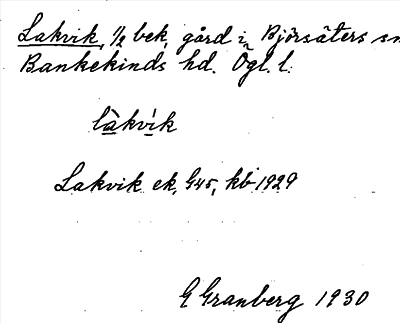 Lakvik, 1/2 bek, gård i Björsäters sn
Bankekinds hd. Ögl. l.
làkvìk
Lakvik ek, G45, kb 1929
G Granberg 1930